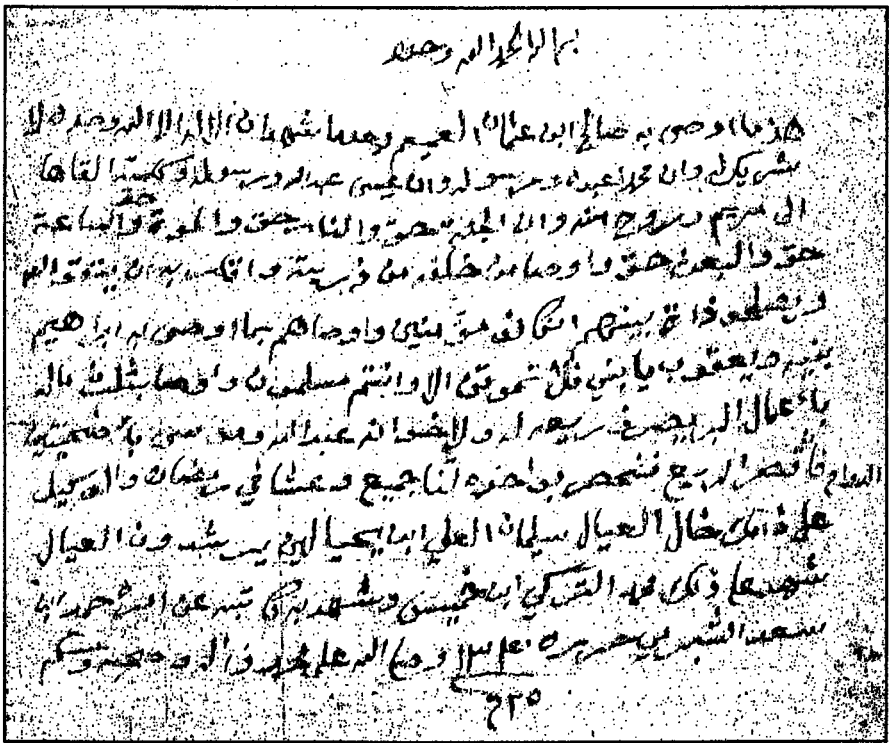 بسم الله الحمد لله وحده
هذما اوصى به صالح ابن عثمان وهو يشهد ان لا اله الا الله وحده لا
شريك له وان محمد اعبده ورسوله وان عيسى عبد الله ورسوله وكلمته القاها
الى مريم وروح منه وان الجنة حق والنار حق والموت حق والساعة
حق والبعث حق واوصا من خلفه من ذريته واقاربه ان يتقو الله
ويصلحو ذات بينهم ان كانو مؤمنين واوصاهم بما اوصى به ابراهيم
بنيه ويعقوب يابني فلا تموتن الا وانتم مسلمون واوصا بثلث ماله
بأعمال البر يصرف ريعه له ولاخوانه عبد الله وموسى بأضحيتين
الدوام فأن قصر الريع جميع وعشا في رمضان والوكيل
على ذالك خال العيال سليمان العلي ابن يحيا لين يرشدون العيال
شهد على ذلك محمد التركي ابن خميس وشهد به كاتبه عن احمد ابن
سعد ١٣٤٠ وصلى الله على محمد واله وصحبه وسلم
٢٥